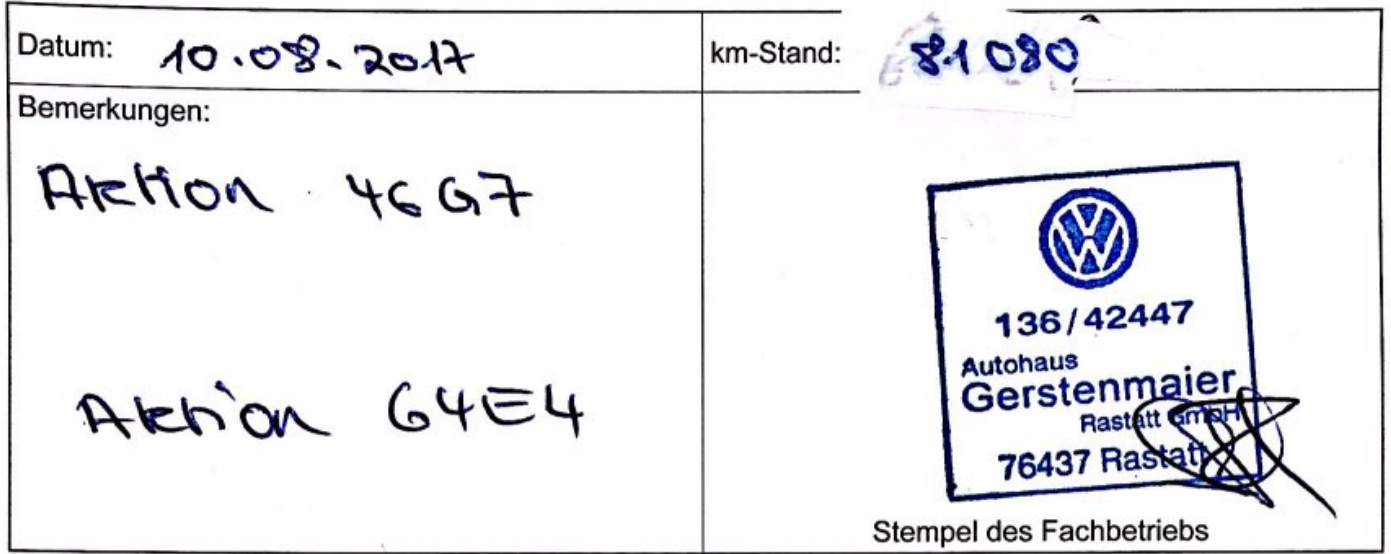 Datum: 10.08.2017
km-Stand: 81080
Bemerkungen:
Aktion 46G7
Aktion 64E4
136/42447
Autohaus
Gerstenmaier
Rastatt GmbH
76437 Rastatt
Stempel des Fachbetriebs